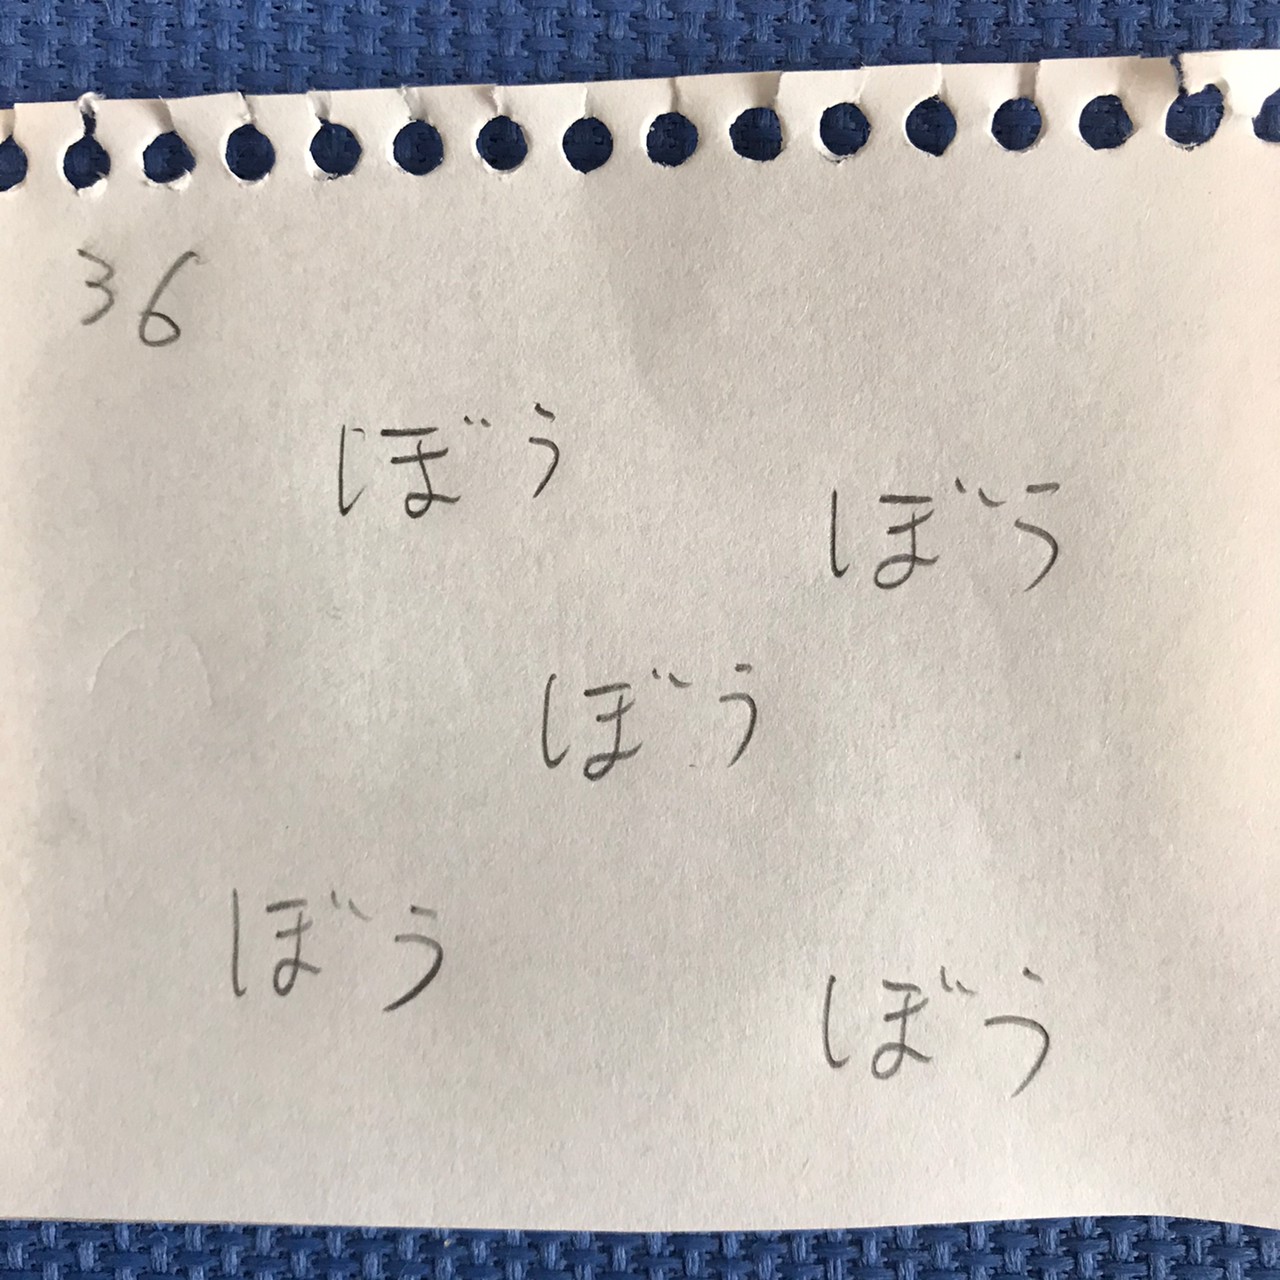 36
ぼう
ぼう
ぼう
ぼう
ぼう